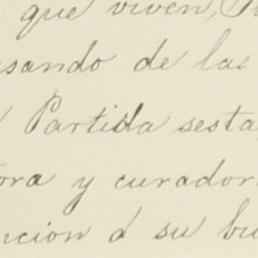 que viven,
usando de las
Partida sesta
tora y curador
ncion á su bu